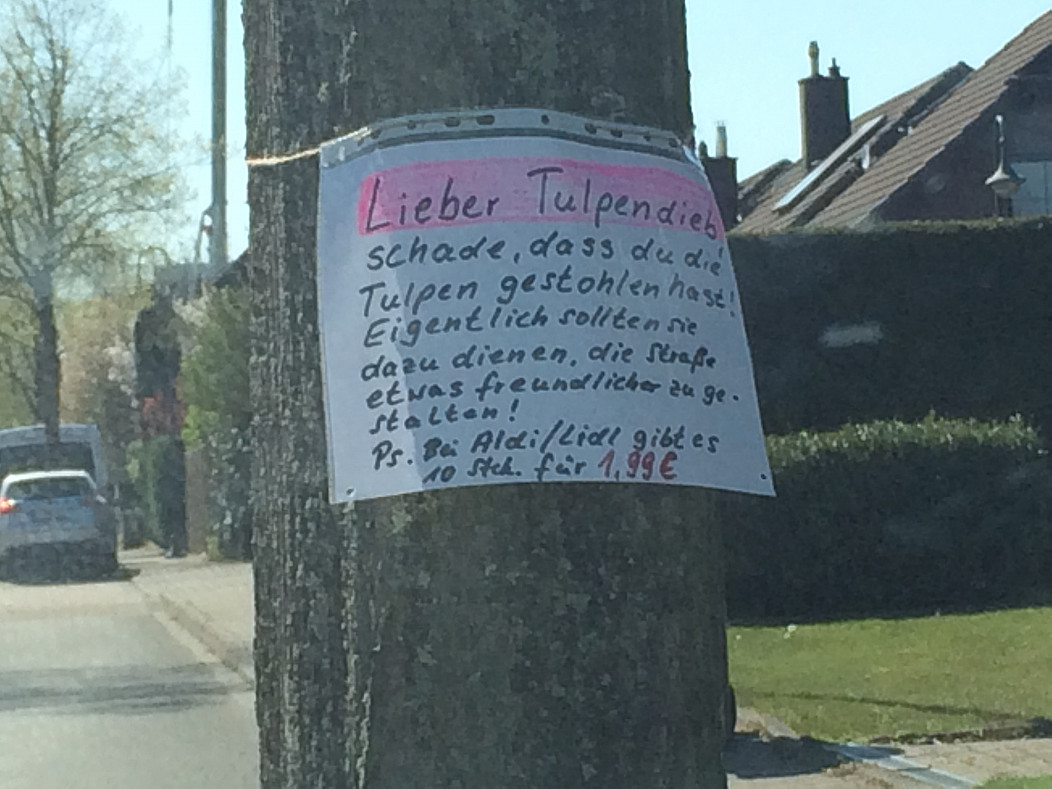 Lieber Tulpendieb
schade, dass du die
Tulpen gestohlen hast!
Eigentlich sollten sie
dazu dienen, die Straße
etwas freundlicher zu ge-
stalten!
Ps. Bei Aldi/Lidl gibt es
10 Stck. für 1,99€